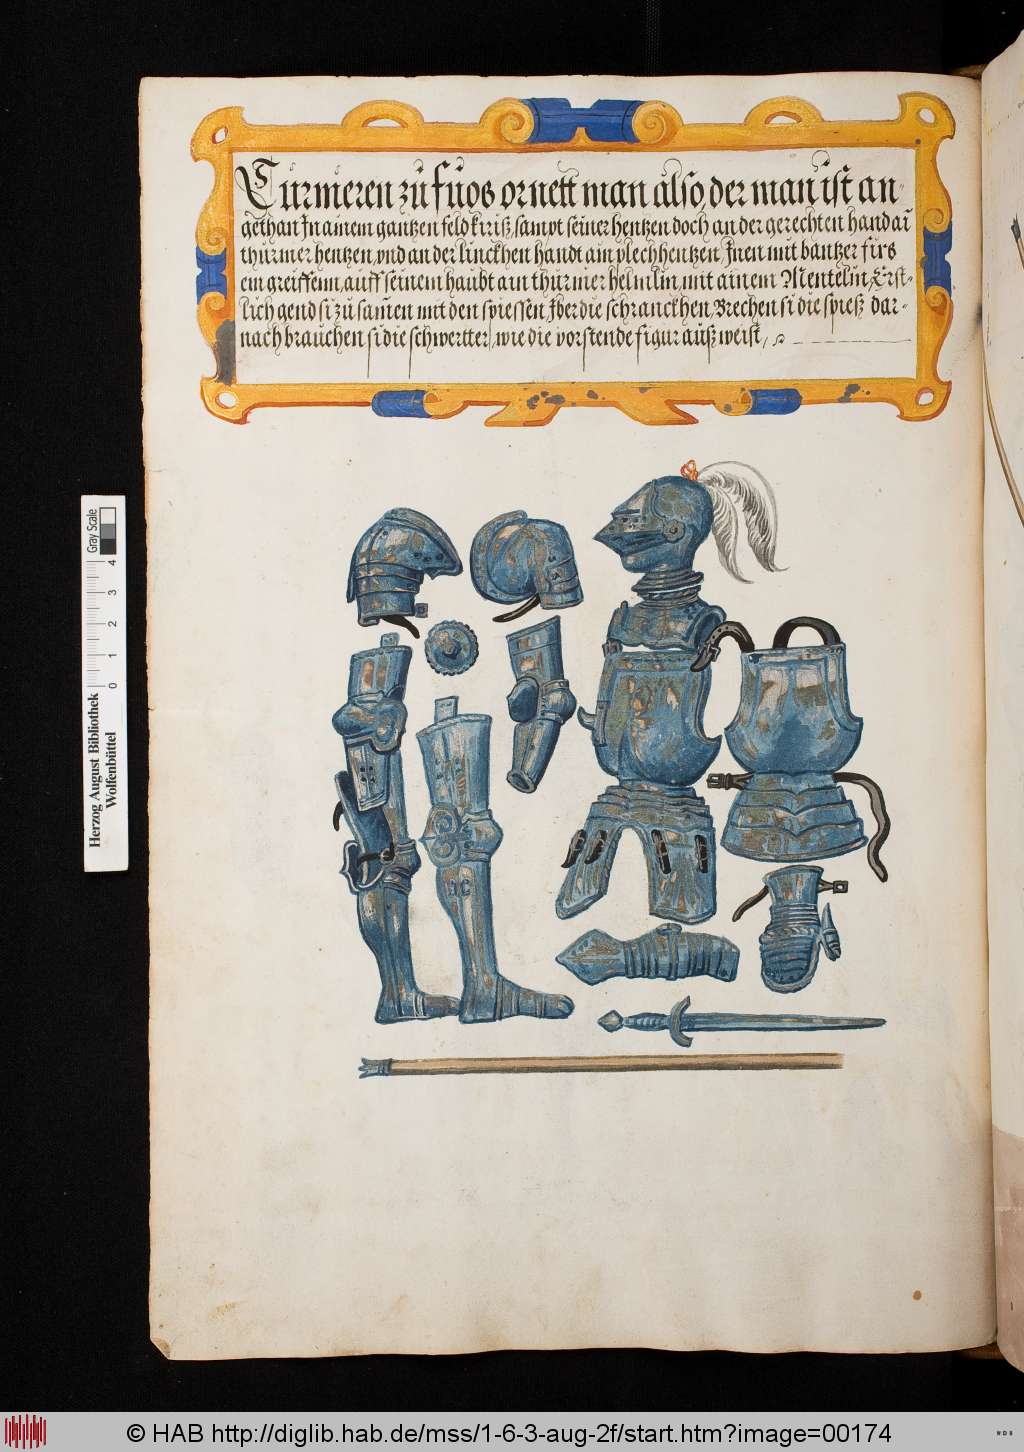 Turnieren zu fuos ornett man also, der man ist an-
gethan In ainem gantzen feldkiriß, sampt seiner hentzen doch an der gerechten hand ain
thurnier hentzen, vnd an der linckhen handt ain plechhentzen, Inen mit bantzer fürs
ein greiffenn, auff seinem haubt ain thurnier helmlin, mit ainem Mentelin, Erst-
lich gend si zu samen mit den spiessen Jber die schranckhen, Brechen si die spieß dar-
nach brauchen si die schwertter, wie die vorstende figur außweist,
Herzog August Bibliothek
Wolfenbüttel
0 1 2 3 4
Gray Scale
© HAB http://diglib.hab.de/mss/1-6-3-aug-2f/start.htm?image=00174